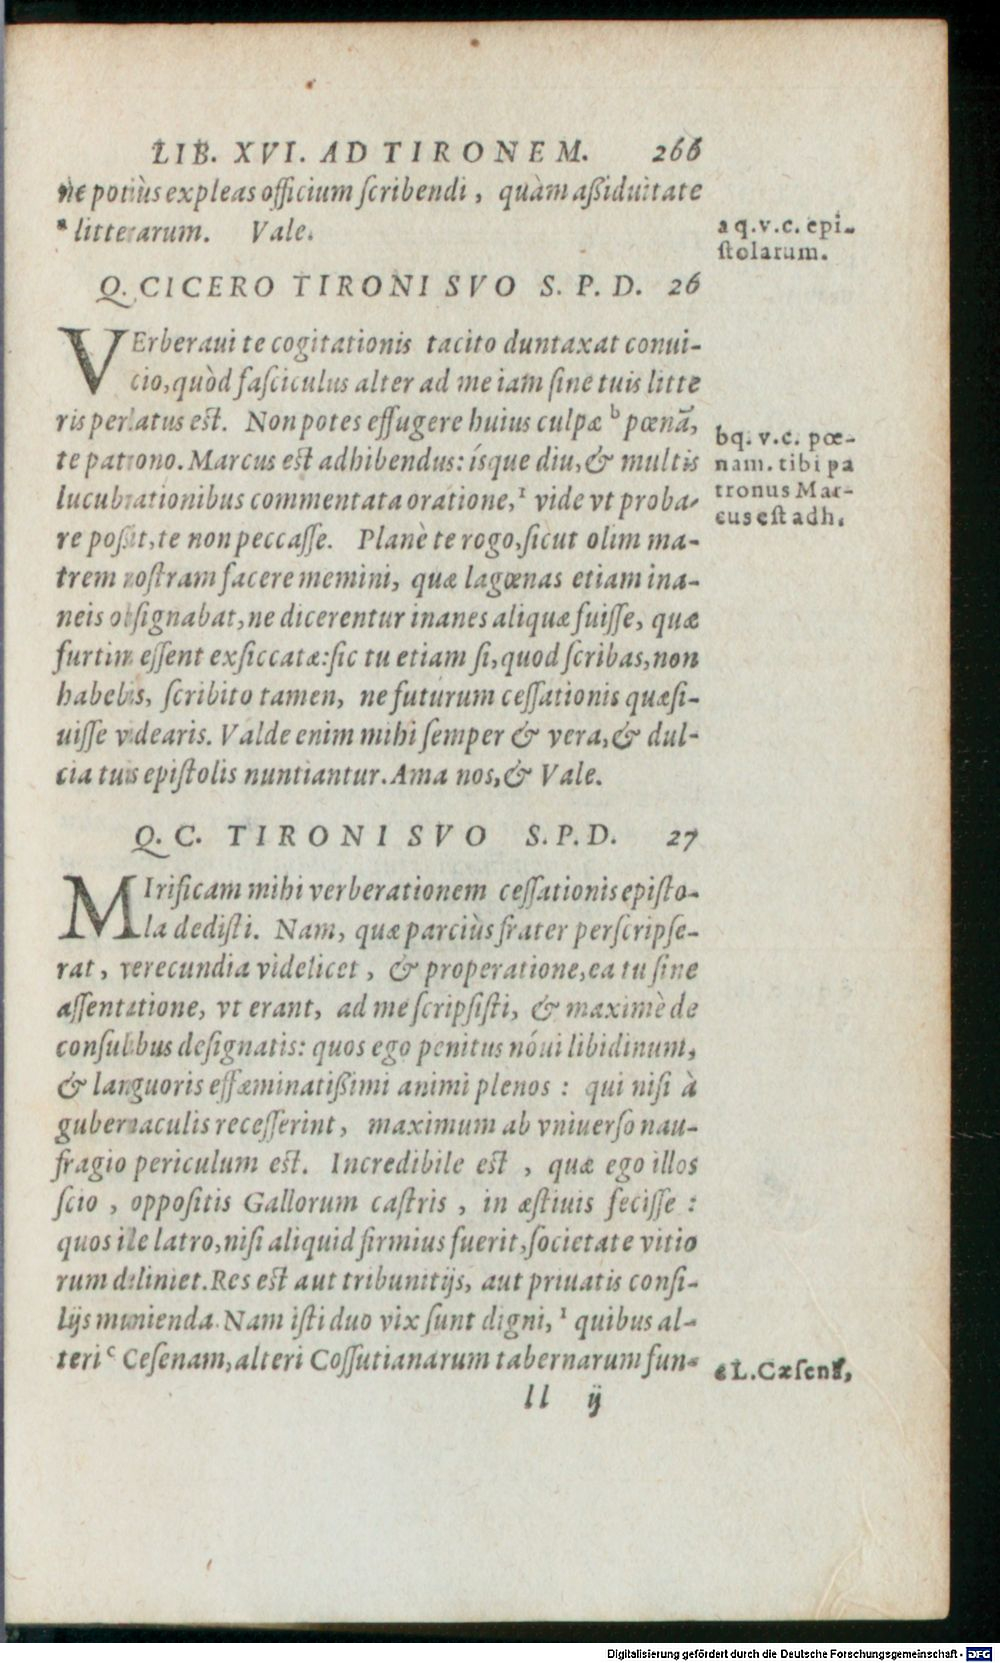 LIB. XVI. AD TIRONEM. 266
ne potiùs expleas officium ſcribendi, quàm aßiduitate
ᵃ litterarum. Vale.
a q.v.c. epi-
ſtolarum.
Q. CICERO TIRONI SVO S. P. D. 26
VErberaui te cogitationis tacito duntaxat conui-
cio, quòd faſciculus alter ad me iam ſine tuis litte
ris perlatus est. Non potes effugere huius culpæ ᵇ pœnā,
te patrono. Marcus est adhibendus: ísque diu, & multis
lucubrationibus commentata oratione, ¹ vide vt proba-
re poßit, te non peccaſſe. Planè te rogo, ſicut olim ma-
trem noſtram facere memini, quæ lagœnas etiam ina-
neis obſignabat, ne dicerentur inanes aliquæ fuiſſe, quæ
furtim eſſent exſiccatæ: ſic tu etiam ſi, quod ſcribas, non
habebis, ſcribito tamen, ne futurum ceſſationis quæſi-
uiſſe videaris. Valde enim mihi ſemper & vera, & dul-
cia tuis epiſtolis nuntiantur. Ama nos, & Vale.
b q. v.c. pœ-
nam. tibi pa
tronus Mar-
cus eſt adh.
Q. C. TIRONI SVO S. P. D. 27
MIrificam mihi verberationem ceſſationis epiſto-
la dediſti. Nam, quæ parciùs frater perſcripſe-
rat, verecundia videlicet, & properatione, ea tu ſine
aſſentatione, vt erant, ad me ſcripſiſti, & maximè de
conſulibus deſignatis: quos ego penitus nóui libidinum,
& languoris effæminatißimi animi plenos: qui niſi à
gubernaculis receſſerint, maximum ab vniuerſo nau-
fragio periculum est. Incredibile est, quæ ego illos
ſcio, oppoſitis Gallorum caſtris, in æſtiuis feciſſe:
quos ille latro, niſi aliquid firmius fuerit, ſocietate vitio
rum deliniet. Res est aut tribunitijs, aut priuatis conſi-
lijs munienda. Nam iſti duo vix ſunt digni, ¹ quibus al-
teri ᶜ Ceſenam, alteri Coſſutianarum tabernarum fun-
c L. Cæſenā,
ll ij
Digitalisierung gefördert durch die Deutsche Forschungsgemeinschaft - DFG